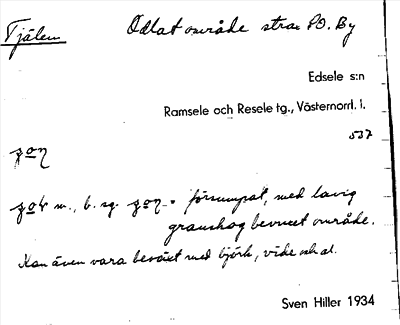 Tjälen Odlat område strax SO. By
Edsele s:n
Ramsele och Resele tg., Västernorrl. l.
537
m., b. sg. försumpat, med lavig
granskog bevuxet område.
Kan även vara beväxt med björk, vide och al.
Sven Hiller 1934